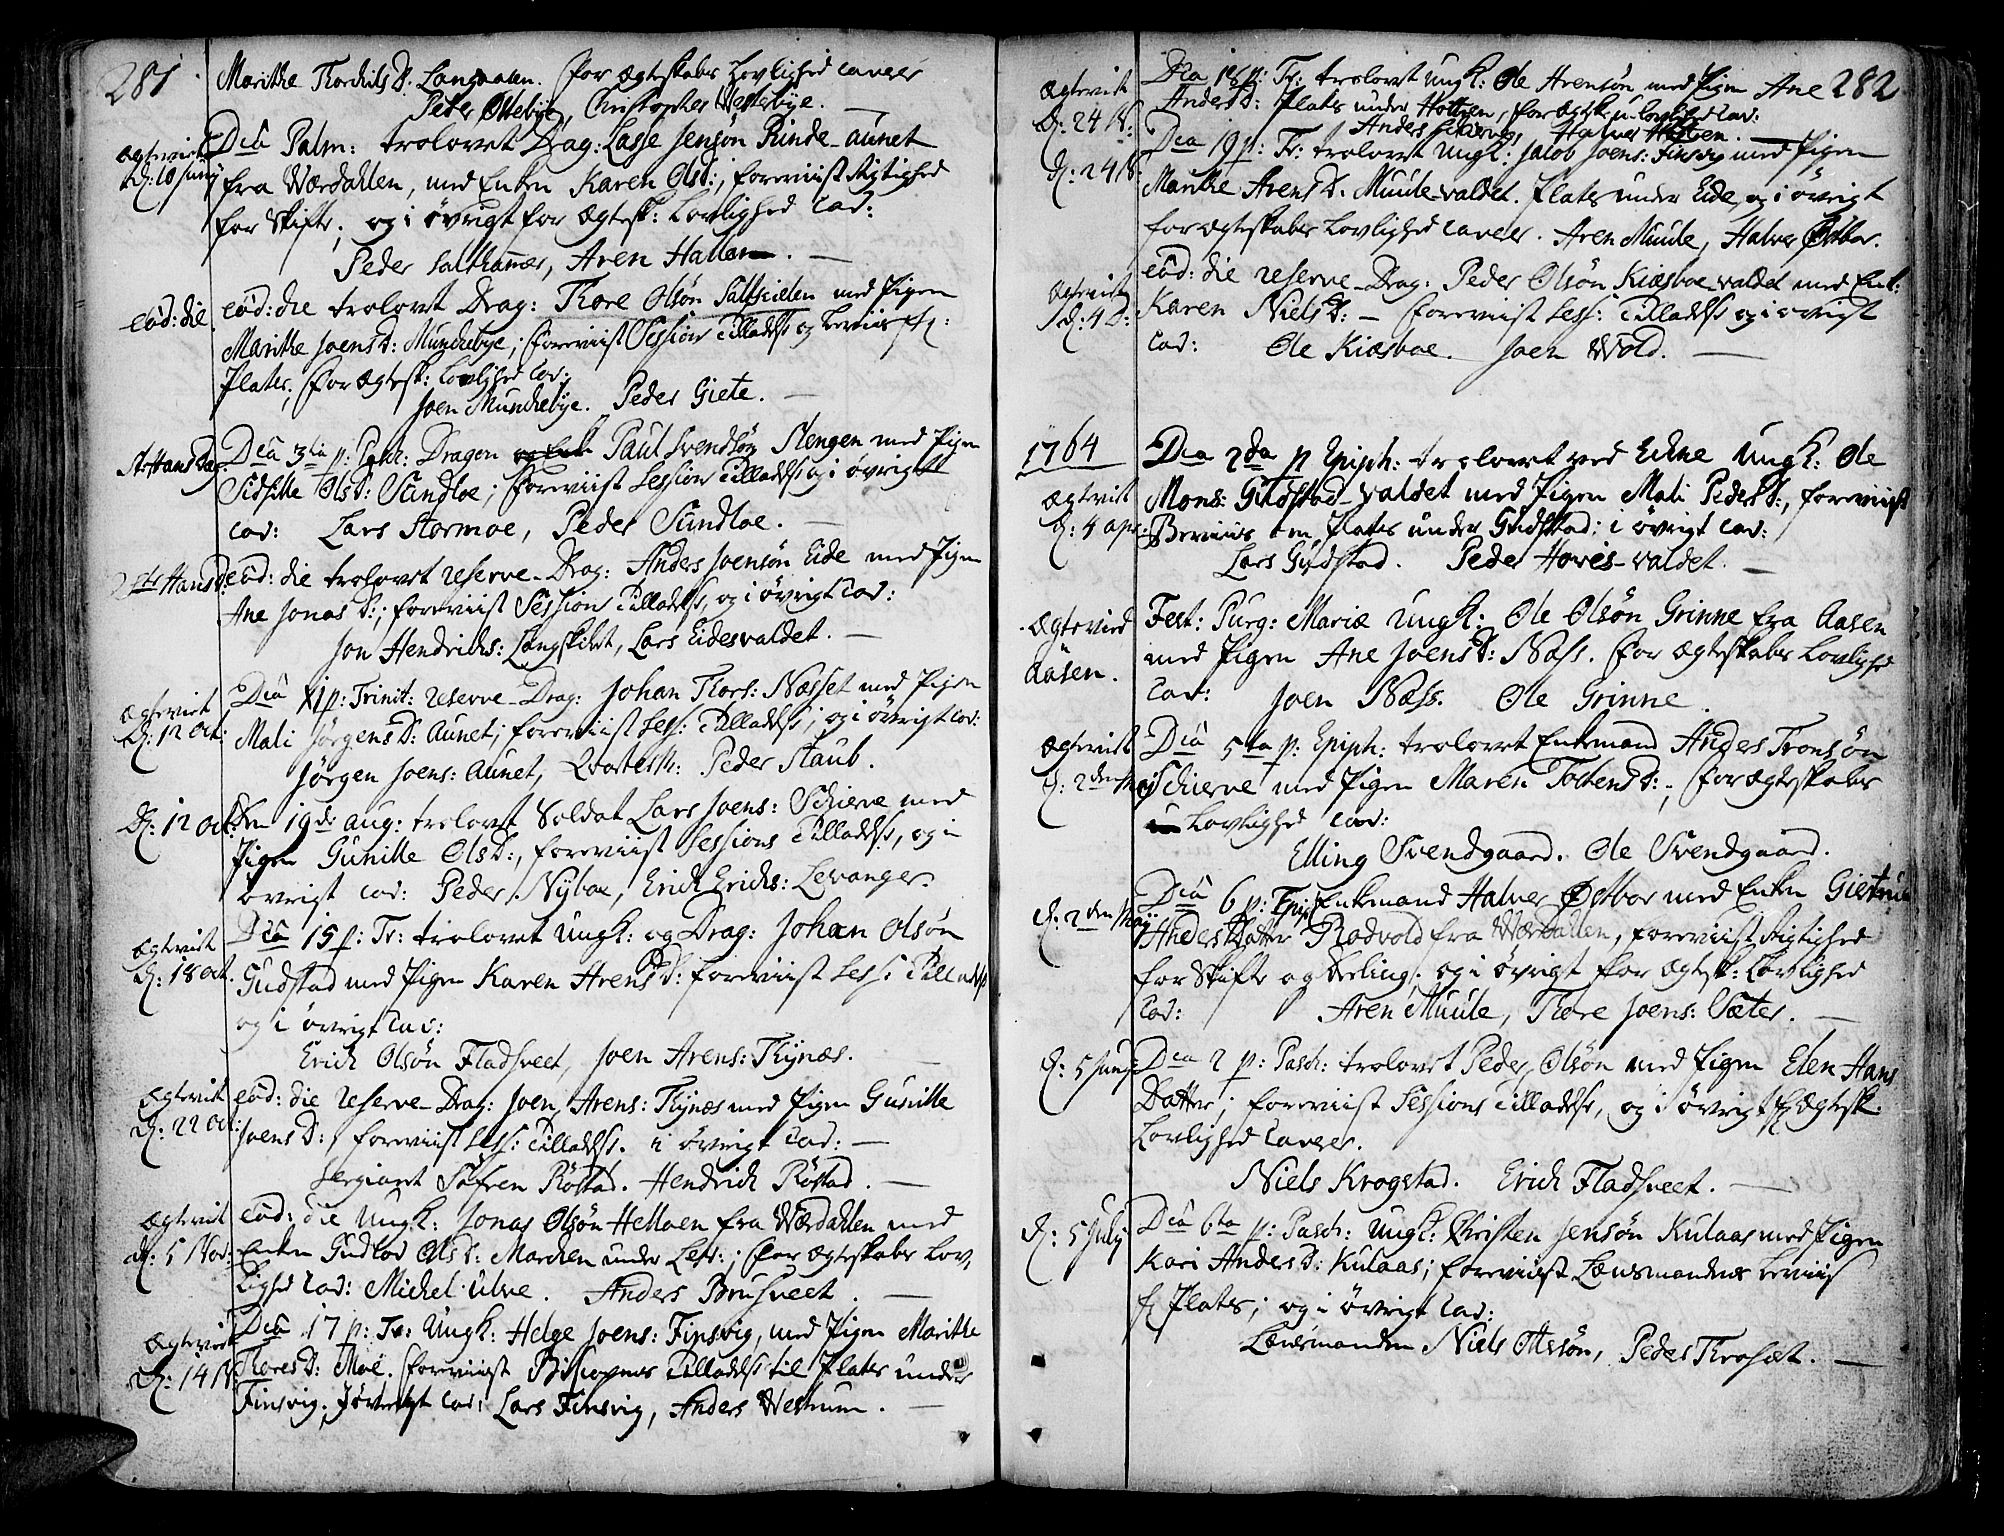 281.
Marithe Thorkilsd: Langaalen. for Ægteskabs Lovlighed caverer
Peder Ottebye, Christopher Westebye.
Ægteviet d: 10 Junij
Dca Palm: trolovet Drag: Lasse Jensøn Rinde-aunet
fra Wærdahlen, med Enken Karen Olsd:, foreviist Rigtighed
for Skifte, og i øvrigt for Ægtesk: Lovlighed cav:
Peder Salthammer, Aren Hallem.
eod: die
eod: die trolovet Drag: Thore Olsøn Saltvielen med Pigen
Marithe Joensd: Munkebye; foreviist Session Tilladelse og beviis for
Plates; for Ægtesk: Lovlighed cav:
Joen Munckebye. Peder Giete.
St Hans Dag
Dca 3tia p: Pasc: Dragon Paul Svendsøn Stengen med Pigen
Sidselle Olsd: Sundloe; foreviist Session Tilladelse og i øvrigt
cav: Lars Stormoe, Peder Sundloe.
St Hansd:
eod: die trolovet reserve-Drag: Anders Joensøn Eide med Pigen
Ane Jonasd:; foreviist Session Tilladelse, og i øvrigt cav:
Jon Hendrichs: Langskibet, Lars Eidesvaldet.
Ægteviet d: 12 Oct:
Dca XI p: Trinit: reserve-Drag: Johan Thors: Næsset med Pigen
Mali Jørgensd: Aunet; foreviist Sess: Tilladelse; og i øvrigt cav:
Jørgen Joens: Aunet, Qvartestr: Peder Staub.
d: 12 Oct:
Den 19de Aug: trolovet Soldat Lars Joens: Schierve med
Pigen Gunille Olsd:, foreviist Sessions Tilladelse, og i
øvrigt cav: Peder Nyboe, Erich Erichs: Levanger.
Ægteviet d: 18 Oct.
Dca 15 p: Tr: trolovet Ungk: og Drag: Johan Olsøn
Gudstad med Pigen Karen Arensd: foreviist Sess: Tilladelse
og i øvrigt cav:
Erich Olsøn Fladsveet, Joen Arens: Thynæs.
Ægteviet d: 22 Oct:
eod: die reserve-Drag: Joen Arens: Thynæs med Pigen Gunille
Joensd:, foreviist Sess: Tilladelse. i øvrigt cav:
Sergiant Søfren Røstad. Hendrich Røstad.
Ægteviet d: 5 Nov:
eod: die Ungk: Jonas Olsøn Helloen fra Wærdahlen med
Enken Gudlov Olsd: Marchen under Lev:; for Ægteskabs Lov,
lighed cav: Michel Ulve. Anders Brusveet.
Ægteviet d: 14 N:
Dca 17 p: Tr: Ungk: Helge Joens: Finsvig, med Pigen Marithe
Thoresd: Moe. foreviist Biscopens Tilladelse til Plates under
Finsvig. J øvrigt cav: Lars Finsvig, Anders Westrum.
282
Ægteviet d: 24 N:
Dca 18 p: Tr: trolovet Ungk: Ole Arensøn med Pigen Ane
Andersd: Plates under Hottran, for Ægtesk: Lovlighed cav:
Anders Schierve, Halver Hottran.
d: 24 N:
Dca 19 p: Tr: trolovet Ungk: Jacob Joens: Finsvig med Pigen
Marithe Arensd: Muule-valdet. Plates under Eide, og i øvrigt
for Ægteskabs Lovlighed caverer. Aren Muule, Halver Østbor.
Ægteviet d: 4 D:
eod: die reserve-Drag: Peder Olsøn Kiæsboe-valdet med Enk:
Karen Nielsd: – foreviist Sess: Tilladelse og i øvrigt
cav: Ole Kiæsboe. Joen Wold.
1764
Ægteviet d: 4 apr:
Dca 2da p Epiph: trolovet ved Eckne Ungk: Ole
Mons: Gudstad-valdet med Pigen Mali Pedersd:, foreviist
Beviis om Plates under Gudstad; i øvrigt cav:
Lars Gudstad. Peder Hoves-valdet.
Ægteviet Aasen.
Fest: Purg: Mariæ Ungk: Ole Olsøn Grinne fra Aasen
med Pigen Ane Joensd: Næss. for Ægteskabs Lovlighed
cav: Joen Næss. Ole Grinne.
Ægteviet d: 2den Maij
Dca 5ta p: Epiph: trolovet Enkemand Anders Tronsøn
Schierve med Pigen Maren Tostensd:, for Ægteskabs
Lovlighed cav:
Elling Svendgaard. Ole Svendgaard.
d: 2den Maij
Dca 6 p: Epiph Enkemand Halver Østbor med Enken Giertrud
Anders Datter Rodvold fra Wærdahlen, foreviist Rigtighed
for Skifte og Deeling, og i øvrigt for Ægtesk: Lovlighed
cav: Aren Muule, Thore Joens: Sæter.
d: 5 Junij
Dca 2 p: Pasch: trolovet Peder Olsøn med Pigen Elen Hans
Datter; foreviist Sessions Tilladelse, og i øvrigt for Ægtesk:
Lovlighed caverer.
Niels Krogstad. Erich Fladsveet.
d: 5 July
Dca 6ta p: Pasch: Ungk: Christen Jensøn Kulaas med Pigen
Kari Andersd: Kulaas; foreviist Lænsmandens beviis
for Plates; og i øvrigt cav:
Lænsmanden Niels Ottesøn, Peder Throsæt.